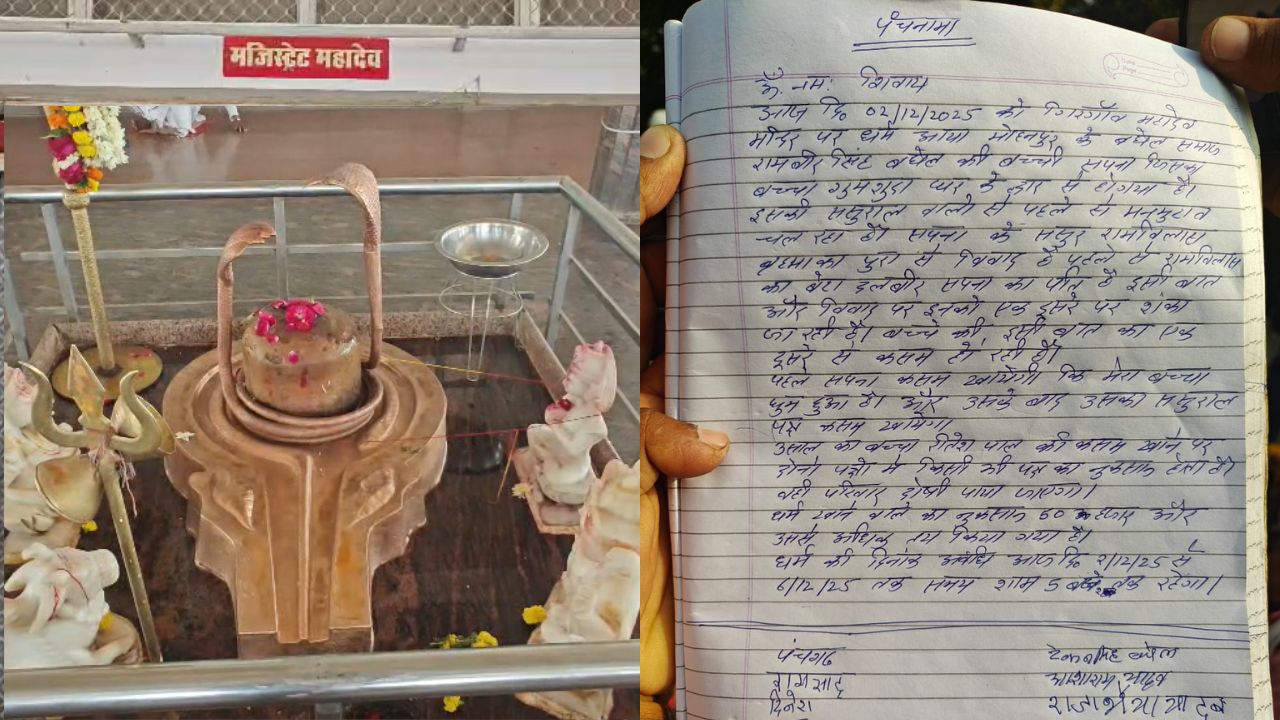 मजिस्ट्रेट महादेव
पंचनामा
ॐ नमः शिवाय
आज दि० 02/12/2025 को गिरगाँव महादेव
मंदिर पर धर्म आया मोहनपुर के बघेल समाज
रामवीर सिंह बघेल की बच्ची सपना जिसका
बच्चा गुमशुदा घर के द्वार से होगया है।
इसकी ससुराल वालो से पहले से मनमुटाव
चल रहा है। सपना के ससुर रामविलास
का पुरा से विवाद है पहले से रामविलास
का बेटा दलवीर सपना का पति है इसी बात
और विवाद पर इनको एक दुसरे पर शंका
जा रही है। बच्चे की इसी बात का एक
दुसरे से कसम हो रही है।
पहले सपना कसम खायेगी कि मेरा बच्चा
गुम हुआ है। और उसके बाद उसका ससुराल
पक्ष कसम खायेगा
का बच्चा रितेश पाल की कसम खाने पर
दोनो पक्षो मे किसी भी पक्ष का नुकसान होता है।
वही परिवार दोषी पाया जाएगा।
धर्म खाने वाले का नुकसान 50 हजार और
उससे अधिक तय किया गया है।
धर्म की दिनांक अवधि आज दि० 2/12/25 से
6/12/25 तक समय शाम 5 बजे तक रहेगा।
पंचगढ
दिनेश